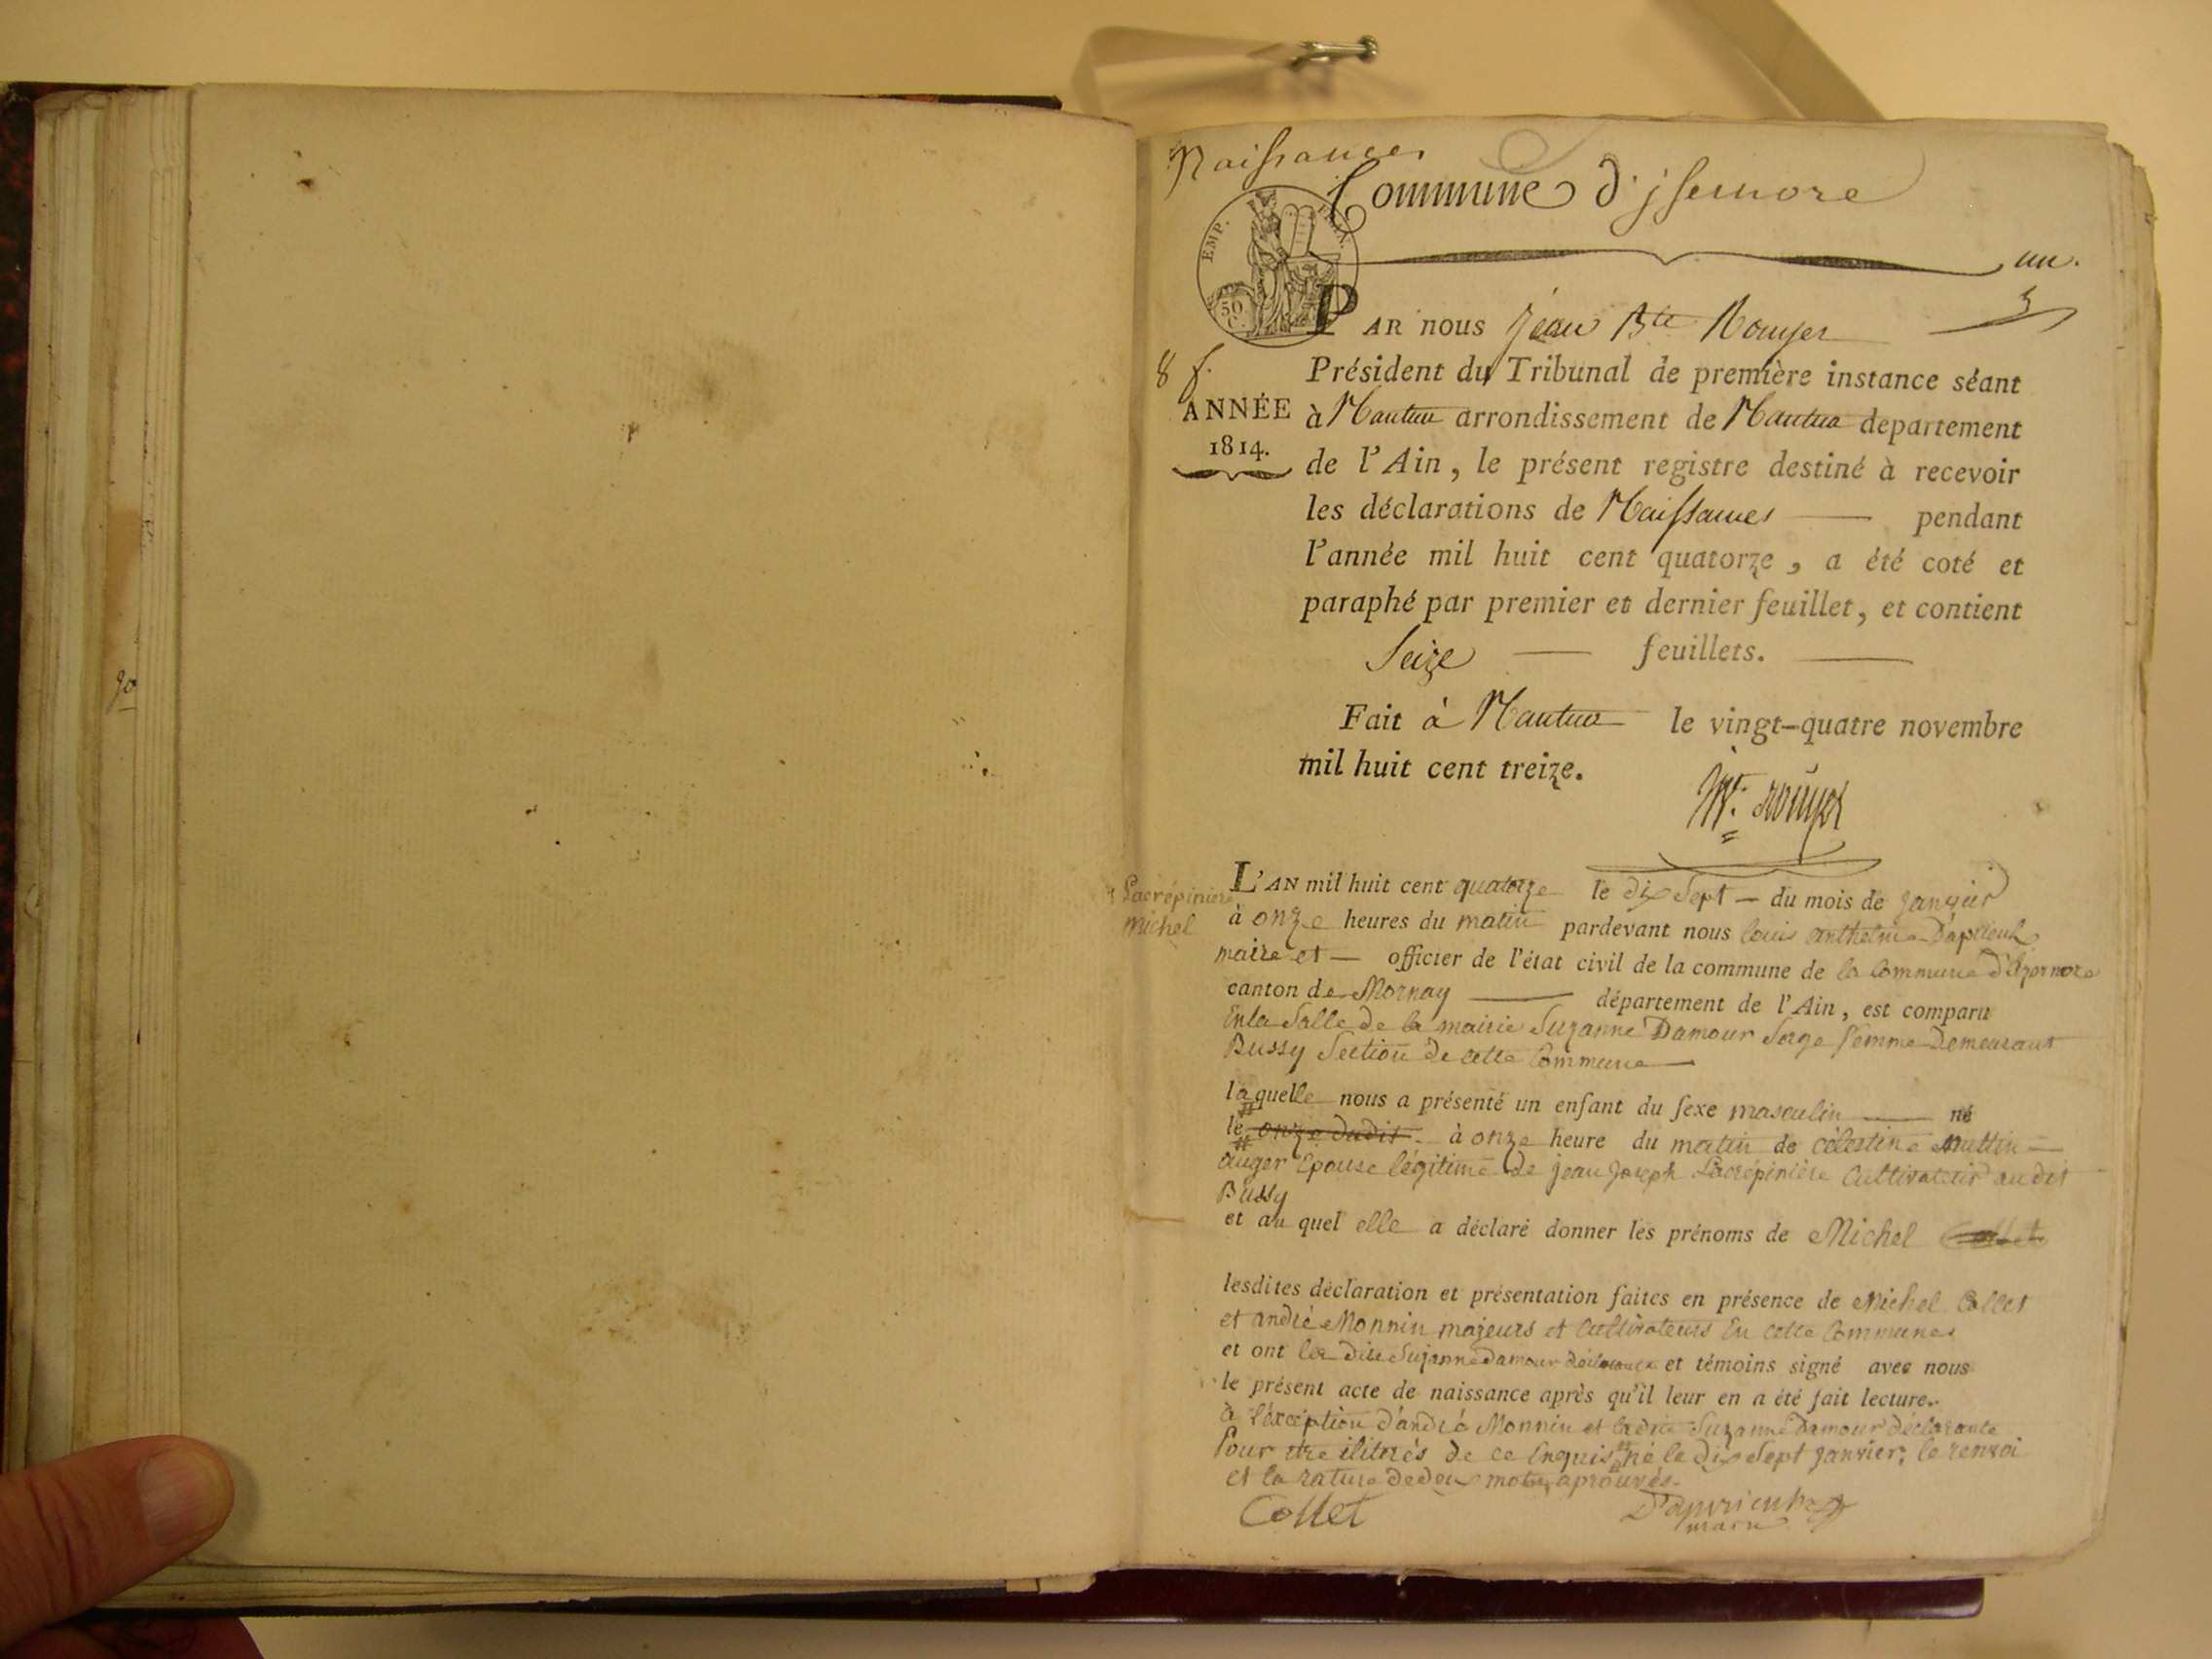 90
Naissances
Commune d'jsernore
EMP.
50
C.
un.
PAR nous jean Bte Rouyer
8 f.
Président du Tribunal de première instance séant
ANNÉE
1814.
à Nantua arrondissement de Nantua département
de l'Ain, le présent registre destiné à recevoir
les déclarations de Naissances — pendant
l'année mil huit cent quatorze, a été coté et
paraphé par premier et dernier feuillet, et contient
Seize — feuillets. —
Fait à Nantua le vingt-quatre novembre
mil huit cent treize.
Rouyer
Lacrépinière
Michel
L'AN mil huit cent quatorze le dix Sept — du mois de janvier
à onze heures du matin pardevant nous louis anthelme
maire et — officier de l'état civil de la commune de la Commune d'Izernore
canton de Mornay — département de l'Ain, est comparu
En la Salle de la mairie Suzanne Damour Sage femme Demeurant
Bussy Section de cette Commune —
laquelle nous a présenté un enfant du sexe masculin — né
le onze dudit à onze heure du matin de célestine Muttin —
auger Epouse légitime de jean joseph Lacrépinière Cultivateur au dit
Bussy
et au quel elle a déclaré donner les prénoms de Michel Collet
lesdites déclaration et présentation faites en présence de Michel Collet
et andré Monnin majeurs et Cultivateurs En cette Commune
et ont la dite Suzanne Damour déclarante et témoins signé avec nous
le présent acte de naissance après qu'il leur en a été fait lecture.
à l'éxception d'andré Monnin et ladite Suzanne Damour déclarante
Pour être ilitrés de ce Enquis # né le dix Sept janvier; le renvoi
et la rature de deux mots aprouvés.
Collet
maire